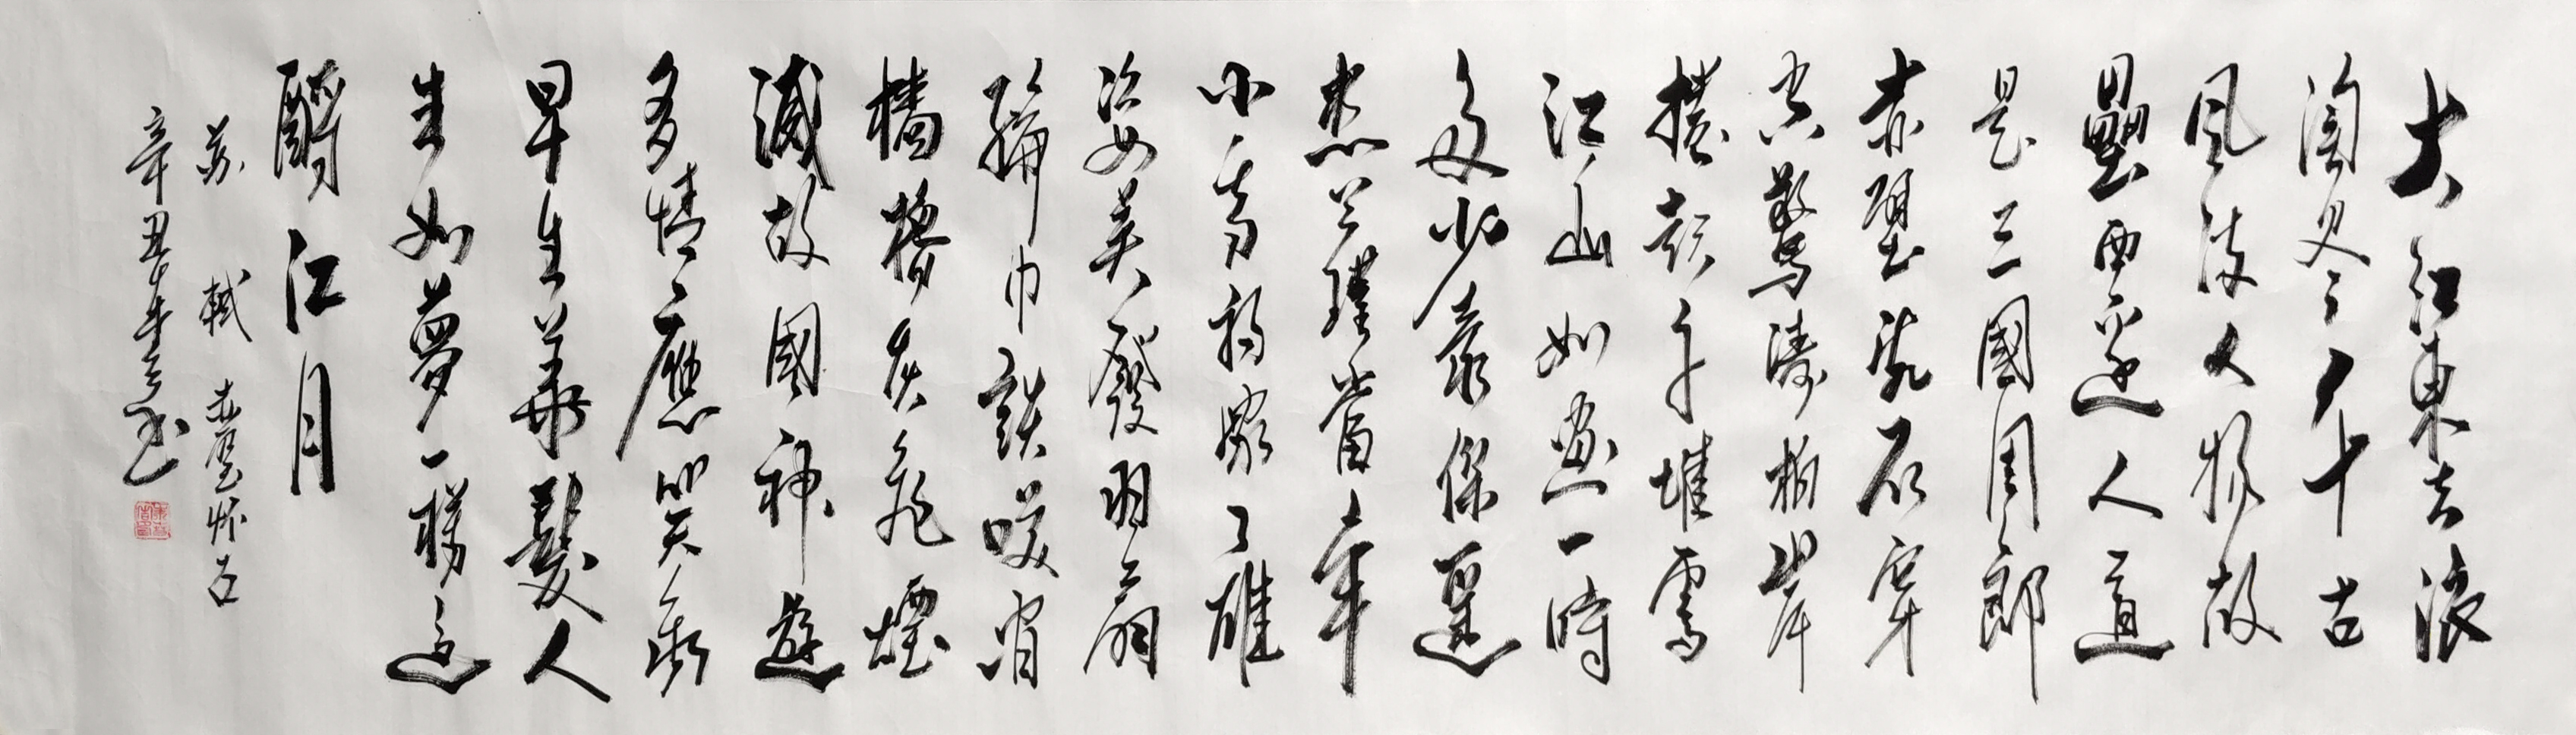 大江東去浪
淘尽千古
風流人物故
壘西邊人道
是三國周郎
赤壁乱石穿
空驚濤拍岸
捲起千堆雪
江山如畫一時
多少豪傑遥
想公瑾當年
小喬初嫁了雄
姿英發羽扇
綸巾談咲間
檣櫓灰飛煙
滅故國神遊
多情應笑我
早生華髮人
生如夢一樽还
酹江月
苏轼 赤壁怀古
辛丑年书